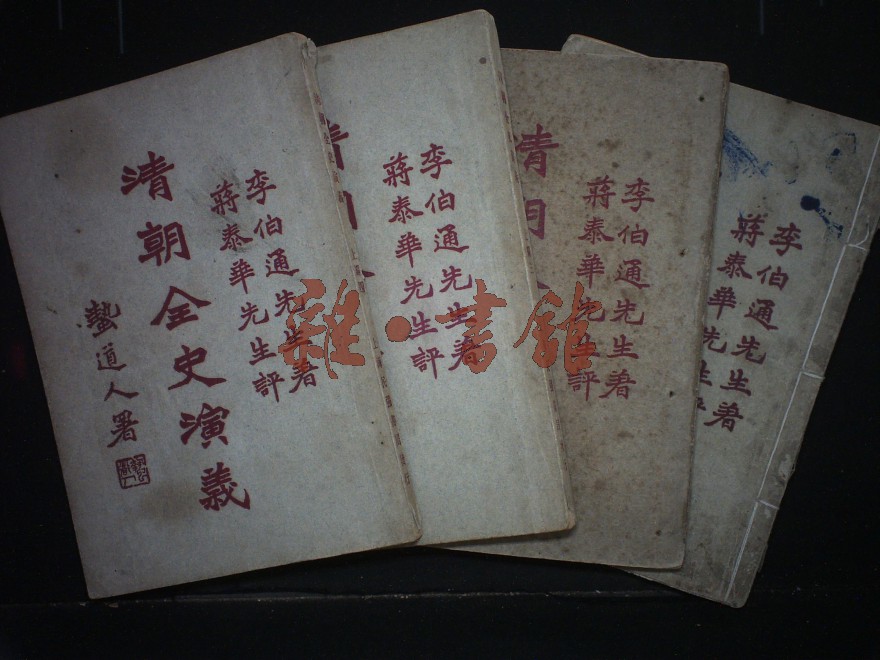 李伯通先生著
蔣泰華先生評
清朝全史演義
蟄道人署
李伯通先生著
蔣泰華先生評
李伯通先生著
蔣泰華先生評
清
李伯通先生著
蔣泰華先生評
雜·書館